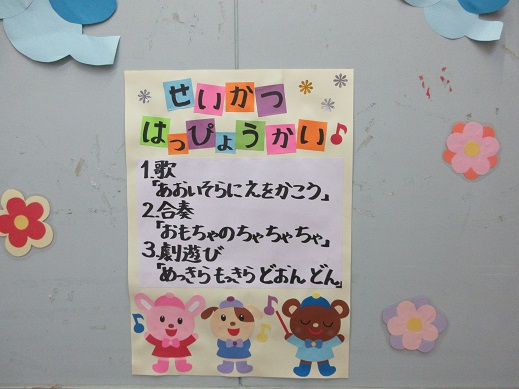 せいかつ
はっぴょうかい
1.歌
「あおいそらにえをかこう」
2.合奏
「おもちゃのちゃちゃちゃ」
3.劇遊び
「めっきらもっきらどおんどん」